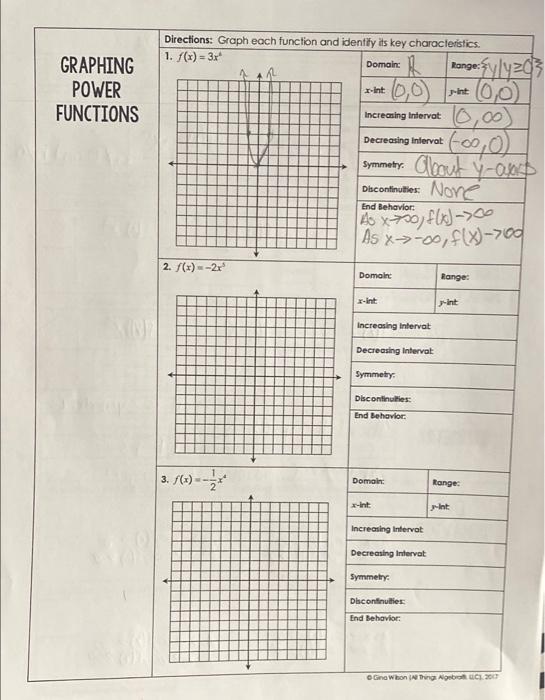 Directions: Graph each function and identify its key characteristics.
GRAPHING
POWER
FUNCTIONS
1. f(x) = 3x⁴
Domain: R
Range: {y|y≥0}
x-int: (0,0)
y-int: (0,0)
Increasing Interval: (0,∞)
Decreasing Interval: (-∞,0)
Symmetry: About y-axis
Discontinuities: None
End Behavior:
As x→∞, f(x)→∞
As x→-∞, f(x)→∞
2. f(x) = -2x⁵
Domain:
Range:
x-int:
y-int:
Increasing Interval:
Decreasing Interval:
Symmetry:
Discontinuities:
End Behavior:
3. f(x) = -1/2 x⁴
Domain:
Range:
x-int:
y-int:
Increasing Interval:
Decreasing Interval:
Symmetry:
Discontinuities:
End Behavior:
© Gina Wilson (All Things Algebra®, LLC), 2017